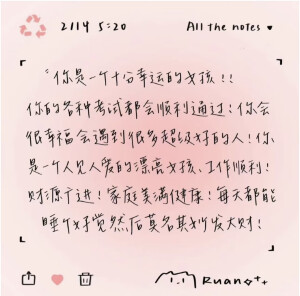 2114 5:20
All the notes ♥
"你是一个十分幸运的女孩!!
你的各种考试都会顺利通过!你会
很幸福会遇到很多超级好的人!你
是一个人见人爱的漂亮女孩、工作顺利!
财源广进!家庭美满健康!每天都能
睡个好觉然后莫名其妙发大财!
Ruano++